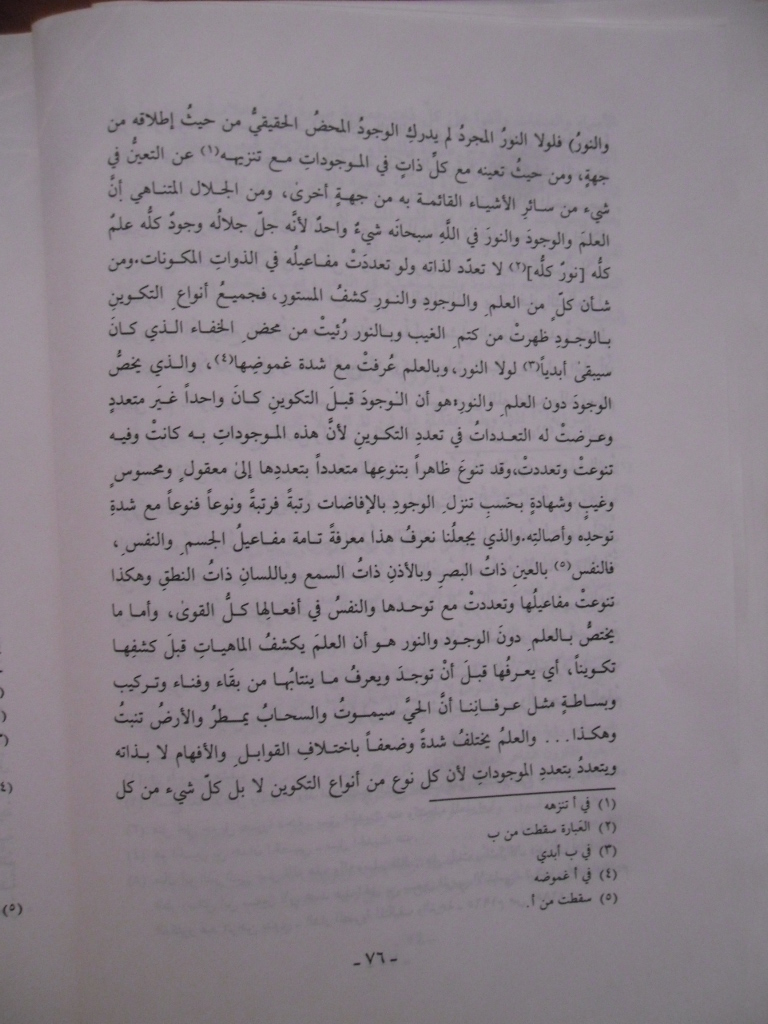 والنورُ) فلولا النورُ المجردُ لم يدركِ الوجودُ المحضُ الحقيقيُّ من حيثُ إطلاقه من
جهةٍ، ومن حيثُ تعينه مع كلِّ ذاتٍ في الموجوداتِ مع تنزيهه(١) عن التعينُّ في
شيء من سائرِ الأشياء القائمة به من جهةٍ أخرىٰ، ومن الجلال المتناهي إنَّ
العلمَ والوجودَ والنورَ في اللَّهِ سبحانَه شيءٌ واحدٌ لأنَّه جلّ جلالُه وجودٌ كلُّه علمٌ
كلُّه [نورٌ كلُّه](٢) لا تعدّد لذاته ولو تعددَتْ مفاعيلُه في الذواتِ المكونات. ومن
شأن كلٍّ من العلمِ والوجودِ والنورِ كشفُ المستورِ، فجميعُ أنواعِ التكوينِ
بالوجودِ ظهرتْ من كتمِ الغيب وبالنور رُئيتْ من محضِ الخفاء الذي كانَ
سيبقىٰ أبدياً(٣) لولا النور، وبالعلم عُرفتْ مع شدة غموضِها(٤)، والذي يخصُّ
الوجودَ دون العلمِ والنورِ؛ هو أن الوجودَ قبلَ التكوينِ كانَ واحداً غيَر متعددٍ
وعرضتْ له التعدداتُ في تعددِ التكوينِ لأنَّ هذه الموجوداتِ به كانتْ وفيه
تنوعتْ وتعددتْ، وقد تنوعَ ظاهراً بتنوعِها متعدداً بتعددِها إلىٰ معقولٍ ومحسوسٍ
وغيبٍ وشهادةٍ بحَسبِ تنزلِ الوجودِ بالإفاضات رتبةً فرتبةً ونوعاً فنوعاً مع شدةِ
توحدِه وأصالتِه. والذي يجعلُنا نعرفُ هذا معرفةً تامة مفاعيلُ الجسمِ والنفسِ،
فالنفس(٥) بالعينِ ذاتُ البصرِ وبالأذنِ ذاتُ السمع وباللسانِ ذاتُ النطقِ وهكذا
تنوعتْ مفاعيلُها وتعددتْ مع توحدها والنفسُ في أفعالِها كلُّ القوىٰ، وأما ما
يختصُّ بالعلمِ دونَ الوجود والنور هو أن العلمَ يكشفُ الماهياتِ قبلَ كشفِها
تكويناً، أي يعرفُها قبلَ أنْ توجدَ ويعرفُ ما ينتابُها من بقَاء وفناء وتركيب
وبساطةٍ مثل عرفانِنا أنَّ الحيَّ سيموتُ والسحابُ يمطرُ والأرضُ تنبتُ
وهكذا... والعلمُ يختلفُ شدةً وضعفاً باختلافِ القوابلِ والأفهام لا بذاته
ويتعددُ بتعددِ الموجوداتِ لأن كل نوع من أنواع التكوين لا بل كلّ شيء من كل
(١) في أ تنزهه
(٢) العَبارة سقطت من ب
(٣) في ب أبدي
(٤) في أ غموضه
(٥) سقطت من أ.
- ٧٦ -